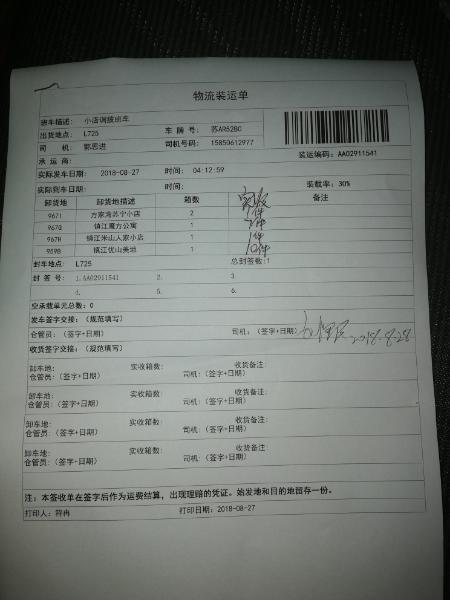 物流装运单
班车描述: 小店调拨班车
出货地点: L725 车 牌 号: 苏AR62BC
司 机: 郭思进 司机号码: 15850612977
承 运 商: 装运编码: AA02911541
实际发车日期: 2018-08-27 时间: 04:12:59
实际到车日期: 时间: 装载率: 30%
卸货地 卸货地描述 箱数 实收 备注
967I 方家湾苏宁小店 2 1件
967G 镇江魔方公寓 1
967H 镇江米山人家小店 1 1件
969B 镇江优山美地 1 10件
封车地点: L725 总封签数:1
封 签 号: 1.AA02911541 2. 3.
4. 5. 6.
空承载单元总数: 0
发车签字交接: (规范填写)
仓管员: (签字+日期) 司机: (签字+日期) 2018.8.28
收货签字交接: (规范填写)
卸车地: 实收箱数: 收货备注:
仓管员: (签字+日期) 司机: (签字+日期)
卸车地: 实收箱数: 收货备注:
仓管员: (签字+日期) 司机: (签字+日期)
卸车地: 实收箱数: 收货备注:
仓管员: (签字+日期) 司机: (签字+日期)
卸车地: 实收箱数: 收货备注:
仓管员: (签字+日期) 司机: (签字+日期)
注: 本签收单在签字后作为运费结算, 出现理赔的凭证。始发地和目的地留存一份。
打印人: 符冉 打印日期: 2018-08-27